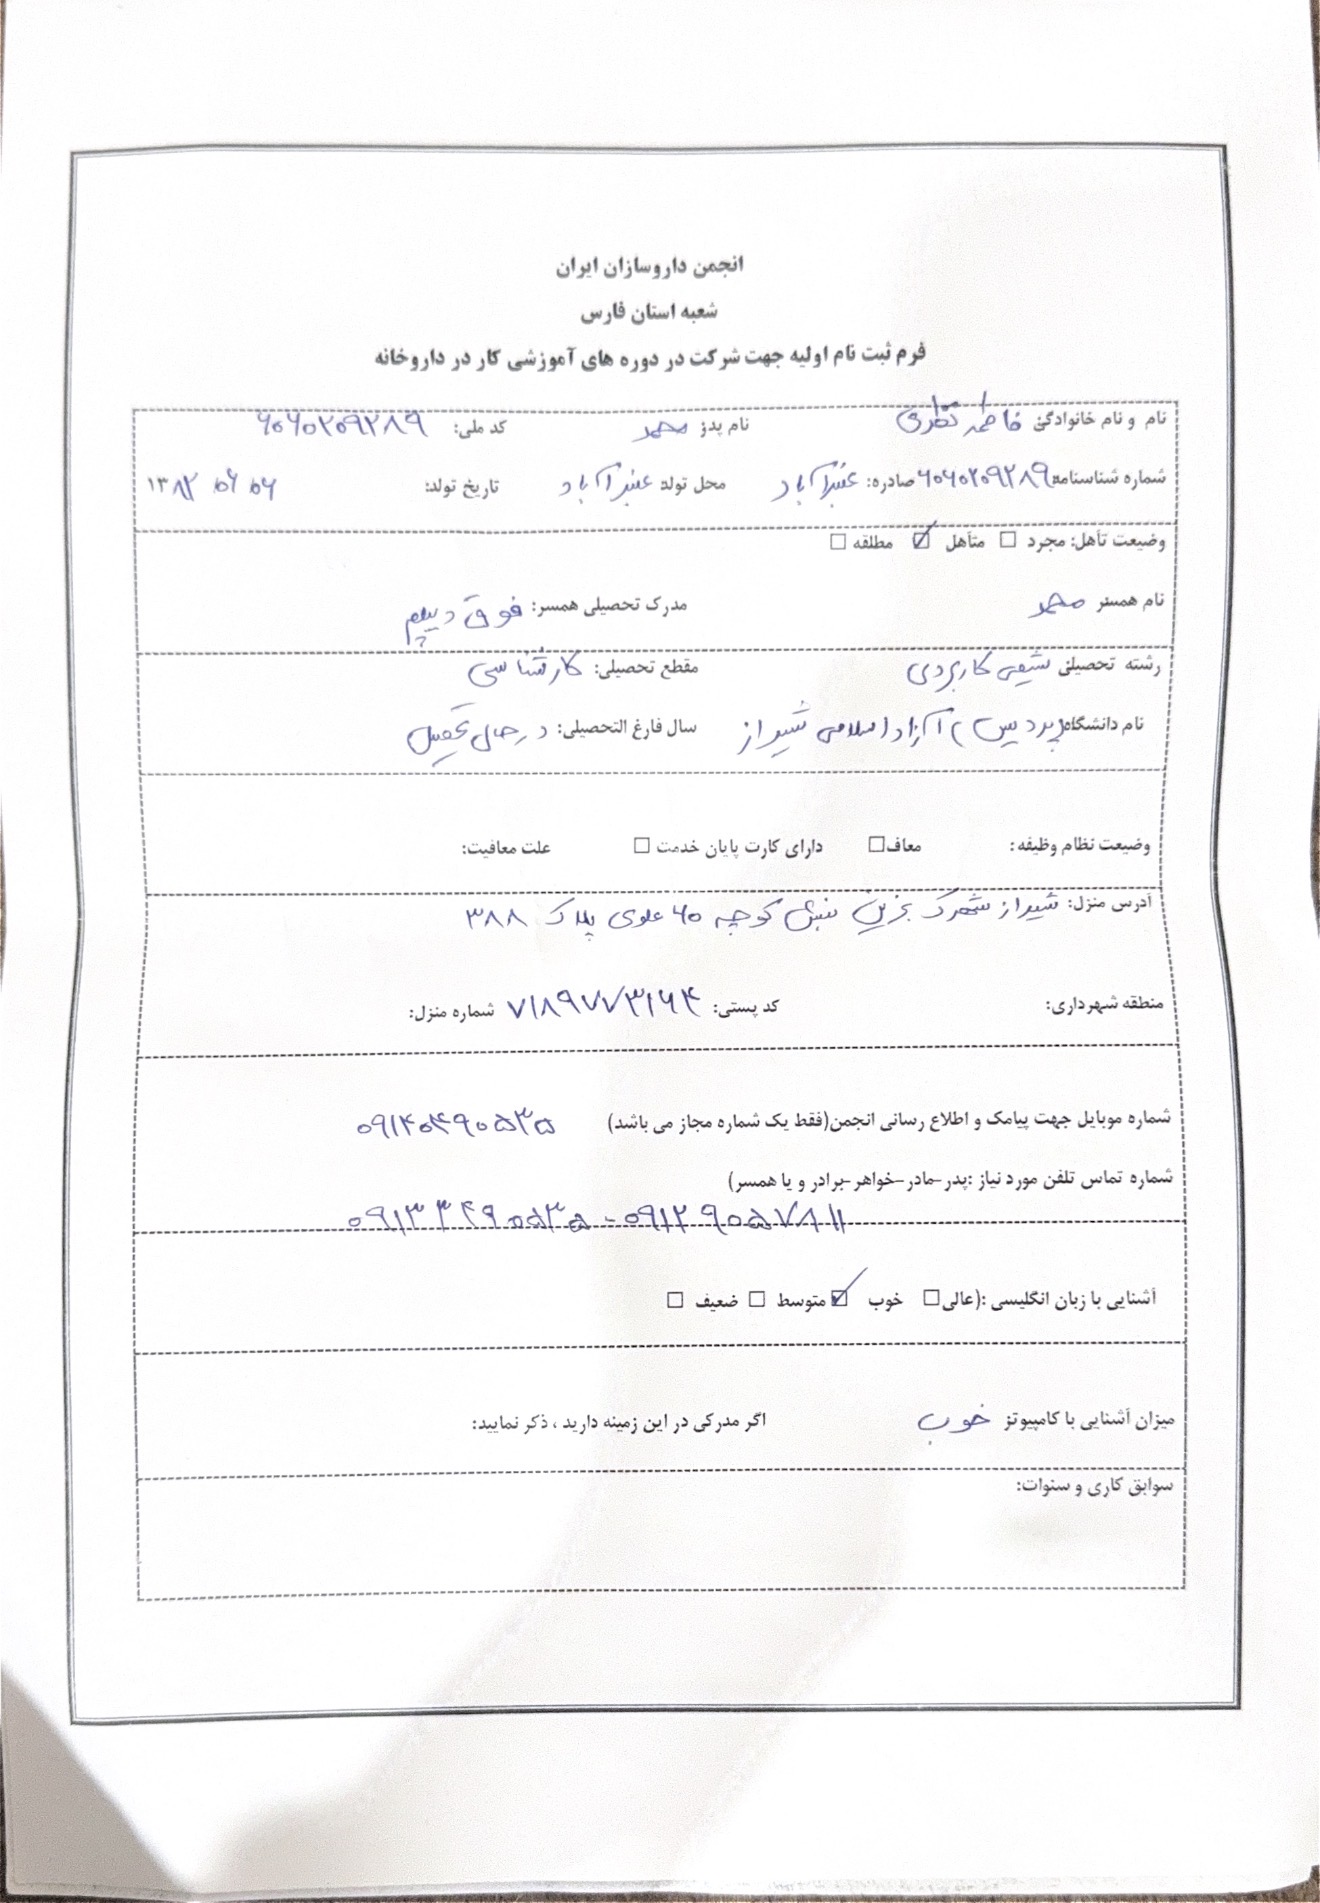 انجمن داروسازان ایران
شعبه استان فارس
فرم ثبت نام اولیه جهت شرکت در دوره های آموزشی کار در داروخانه
نام و نام خانوادگی: فاطمه نظری نام پدر: محمد کد ملی: ۶۰۶۰۲۰۹۲۸۹
شماره شناسنامه: ۶۰۶۰۲۰۹۲۸۹ صادره: عنبرآباد محل تولد: عنبرآباد تاریخ تولد: ۱۳۸۲ ۰۶ ۰۶
وضیعت تأهل: مجرد ☐ متأهل ☑ مطلقه ☐
نام همسر: محمد مدرک تحصیلی همسر: فوق دیپلم
رشته تحصیلی: شیمی کاربردی مقطع تحصیلی: کارشناسی
نام دانشگاه: (پردیس) آزاد اسلامی شیراز سال فارغ التحصیلی: در حال تحصیل
وضیعت نظام وظیفه: معاف☐ دارای کارت پایان خدمت ☐ علت معافیت:
آدرس منزل: شیراز شهرک بزین نبش کوچه ۶۵ علوی پلاک ۳۸۸
منطقه شهرداری: کد پستی: ۷۱۸۹۷۷۳۱۶۴ شماره منزل:
شماره موبایل جهت پیامک و اطلاع رسانی انجمن(فقط یک شماره مجاز می باشد) ۰۹۱۴۰۴۹۰۵۳۵
شماره تماس تلفن مورد نیاز :پدر-مادر-خواهر-برادر و یا همسر)
۰۹۱۳۳۴۹۰۵۳۵ - ۰۹۱۲۹۰۵۷۸۱۱
آشنایی با زبان انگلیسی :(عالی☐ خوب ☑ متوسط ☐ ضعیف ☐
میزان آشنایی با کامپیوتر: خوب اگر مدرکی در این زمینه دارید ، ذکر نمایید:
سوابق کاری و سنوات: